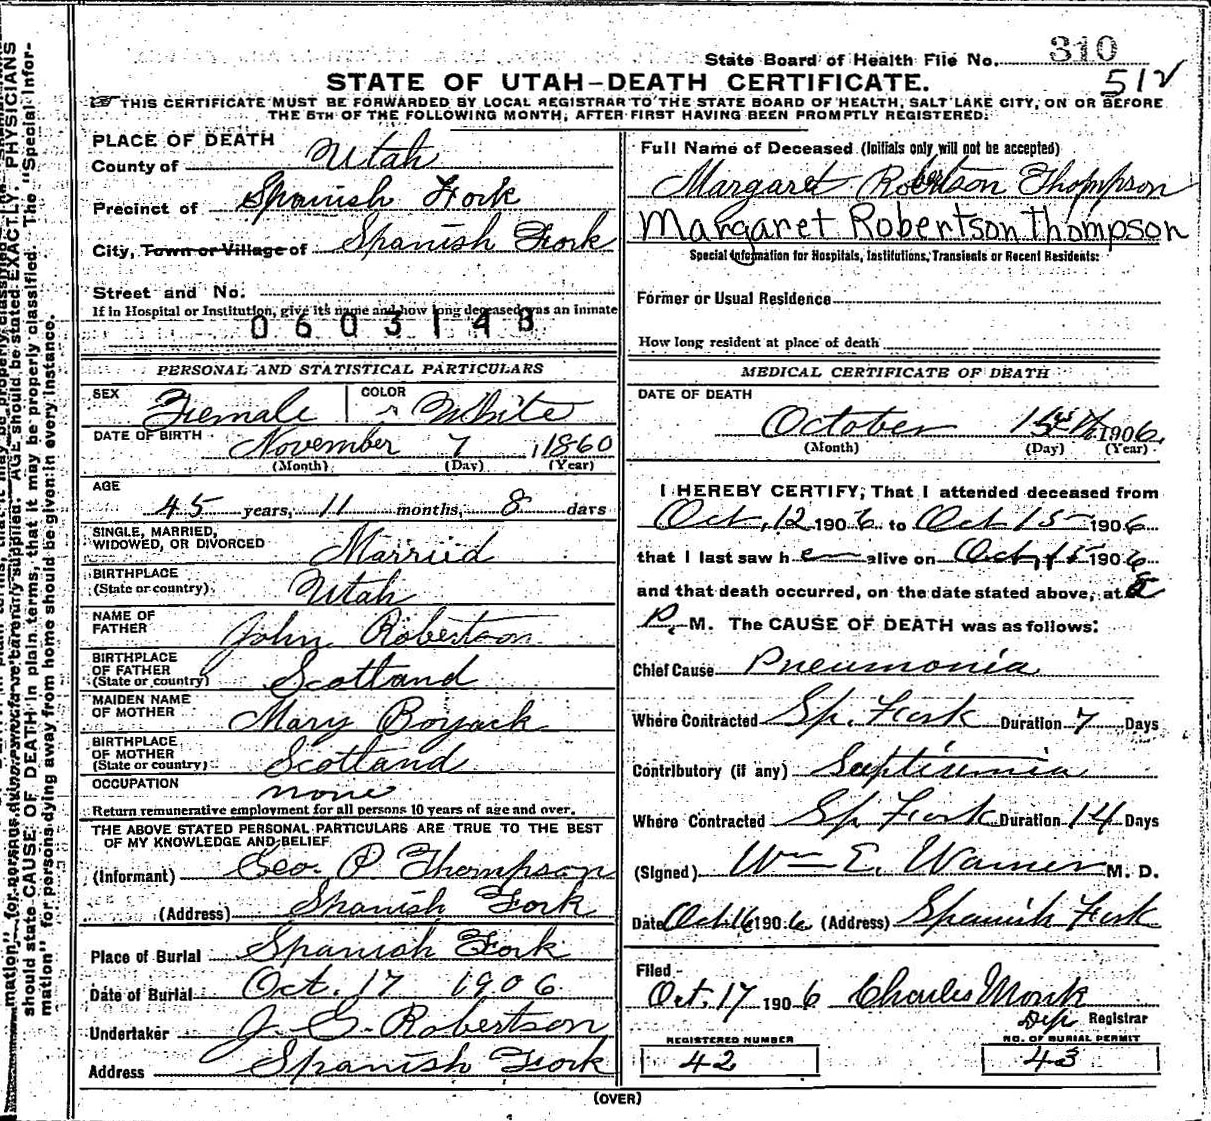 State Board of Health File No. 310
512
STATE OF UTAH—DEATH CERTIFICATE.
THIS CERTIFICATE MUST BE FORWARDED BY LOCAL REGISTRAR TO THE STATE BOARD OF HEALTH, SALT LAKE CITY, ON OR BEFORE
THE 5TH OF THE FOLLOWING MONTH, AFTER FIRST HAVING BEEN PROMPTLY REGISTERED.
PLACE OF DEATH
County of Utah
Precinct of Spanish Fork
City, Town or Village of Spanish Fork
Street and No.
If in Hospital or Institution, give its name and how long deceased was an inmate
0603148
PERSONAL AND STATISTICAL PARTICULARS
SEX Female COLOR White
DATE OF BIRTH November 7, 1860
(Month) (Day) (Year)
AGE
45 years, 11 months, 8 days
SINGLE, MARRIED,
WIDOWED, OR DIVORCED Married
BIRTHPLACE
(State or country) Utah
NAME OF
FATHER John Robertson
BIRTHPLACE
OF FATHER
(State or country) Scotland
MAIDEN NAME
OF MOTHER Mary Boyack
BIRTHPLACE
OF MOTHER
(State or country) Scotland
OCCUPATION none
Return remunerative employment for all persons 10 years of age and over.
THE ABOVE STATED PERSONAL PARTICULARS ARE TRUE TO THE BEST
OF MY KNOWLEDGE AND BELIEF
(Informant) Geo. P Thompson
(Address) Spanish Fork
Place of Burial Spanish Fork
Date of Burial Oct. 17 1906
Undertaker J. G. Robertson
Address Spanish Fork
Full Name of Deceased (Initials only will not be accepted)
Margaret Robertson Thompson
Margaret Robertson Thompson
Special Information for Hospitals, Institutions, Transients or Recent Residents:
Former or Usual Residence
How long resident at place of death
MEDICAL CERTIFICATE OF DEATH
DATE OF DEATH
October 15th 1906.
(Month) (Day) (Year)
I HEREBY CERTIFY, That I attended deceased from
Oct, 12 1906 to Oct 15 1906
that I last saw her alive on Oct, 15 1906
and that death occurred, on the date stated above, at
P. M. The CAUSE OF DEATH was as follows:
Chief Cause Pneumonia
Where Contracted Sp. Fork Duration 7 Days
Contributory (if any) Septisimia
Where Contracted Sp Fork Duration 14 Days
(Signed) Wm E. Warner M. D.
Date Oct 16 1906 (Address) Spanish Fork
Filed
Oct. 17 1906 Charles Monk
Dep Registrar
REGISTERED NUMBER
42
NO. OF BURIAL PERMIT
43
(OVER)
should state CAUSE OF DEATH in plain terms, that it may be properly classified. The "Special Infor-
mation" for persons dying away from home should be given in every instance.